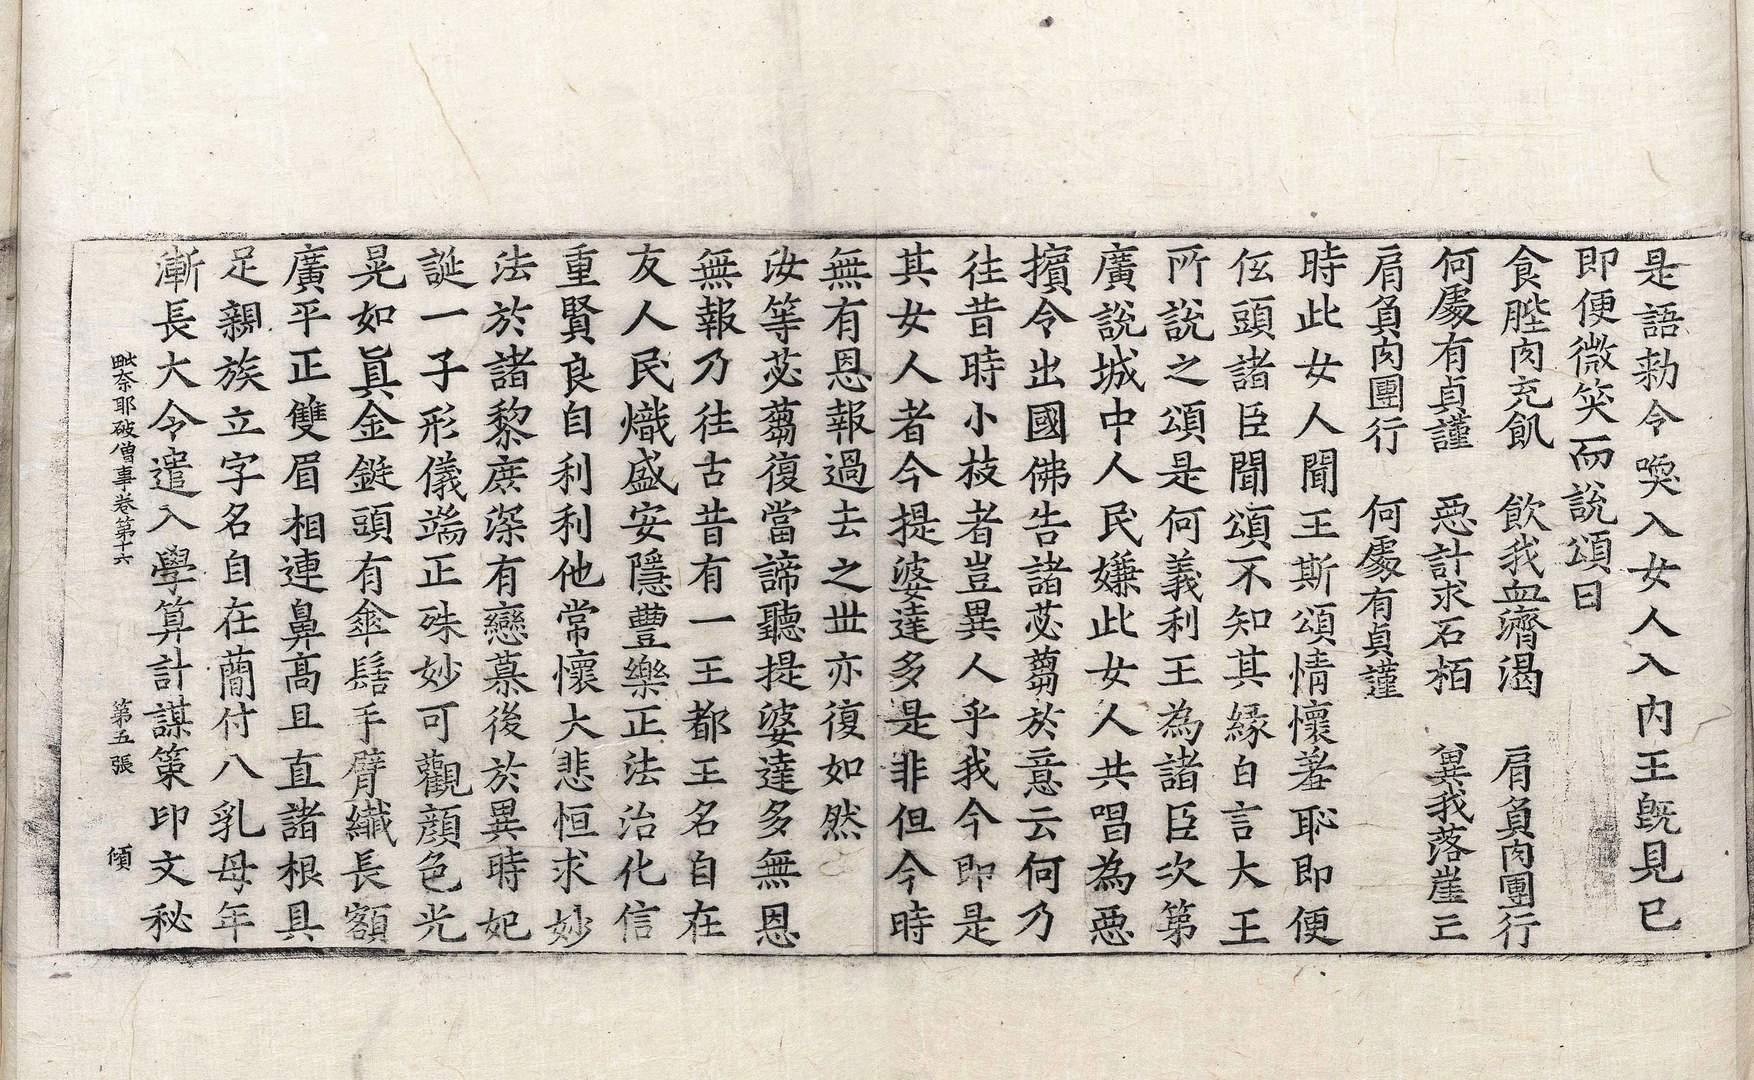 是語勑令喚入女人入內王旣見已
即便微笑而說頌曰
食䏶肉充飢　飮我血濟渴　肩負肉團行
何處有貞謹　惡計求石栢　冀我落崖亡
肩負肉團行　何處有貞謹
時此女人聞王斯頌情懷羞恥即便
低頭諸臣聞頌不知其緣白言大王
所說之頌是何義利王爲諸臣次第
廣說城中人民嫌此女人共唱爲惡
擯令出國佛告諸苾蒭於意云何乃
往昔時小枝者豈異人乎我今即是
其女人者今提婆達多是非但今時
無有恩報過去之世亦復如然
汝等苾蒭復當諦聽提婆達多無恩
無報乃往古昔有一王都王名自在
友人民熾盛安隱豐樂正法治化信
重賢良自利利他常懷大悲恒求妙
法於諸黎庶深有戀慕後於異時妃
誕一子形儀端正殊妙可觀顔色光
晃如眞金鋌頭有傘髻手臂纖長額
廣平正雙眉相連鼻高且直諸根具
足親族立字名自在蕳付八乳母年
漸長大令遣入學算計謀策印文秘
毗奈耶破僧事卷第十六　第五張　傾